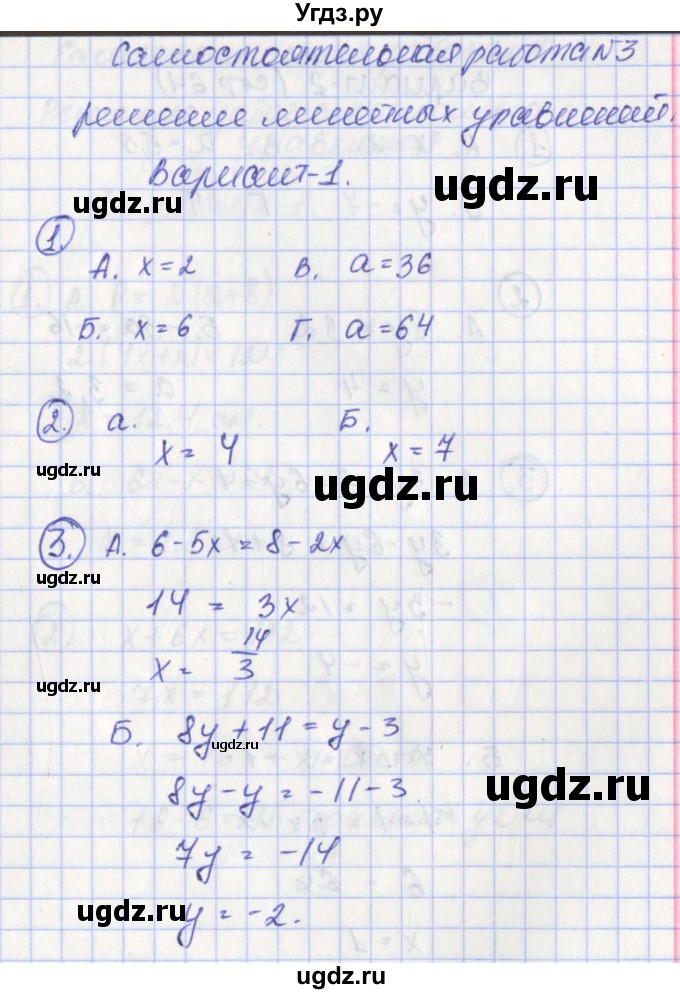 Угдз.ру
Самостоятельная работа №3
решение линейных уравнений.
Вариант-1.
ugdz.ru
ugdz.ru
1.
А. x = 2
В. a = 36
Б. x = 6
Г. a = 64
ugdz.ru
2. а.
x = 4
Б.
x = 7
ugdz.ru
ugdz.ru
3. А. 6 - 5x = 8 - 2x
ugdz.ru
14 = 3x
x = 14/3
ugdz.ru
Б. 8y + 11 = y - 3
ugdz.ru
8y - y = -11 - 3
ugdz.ru
7y = -14
ugdz.ru
y = -2.
ugdz.ru